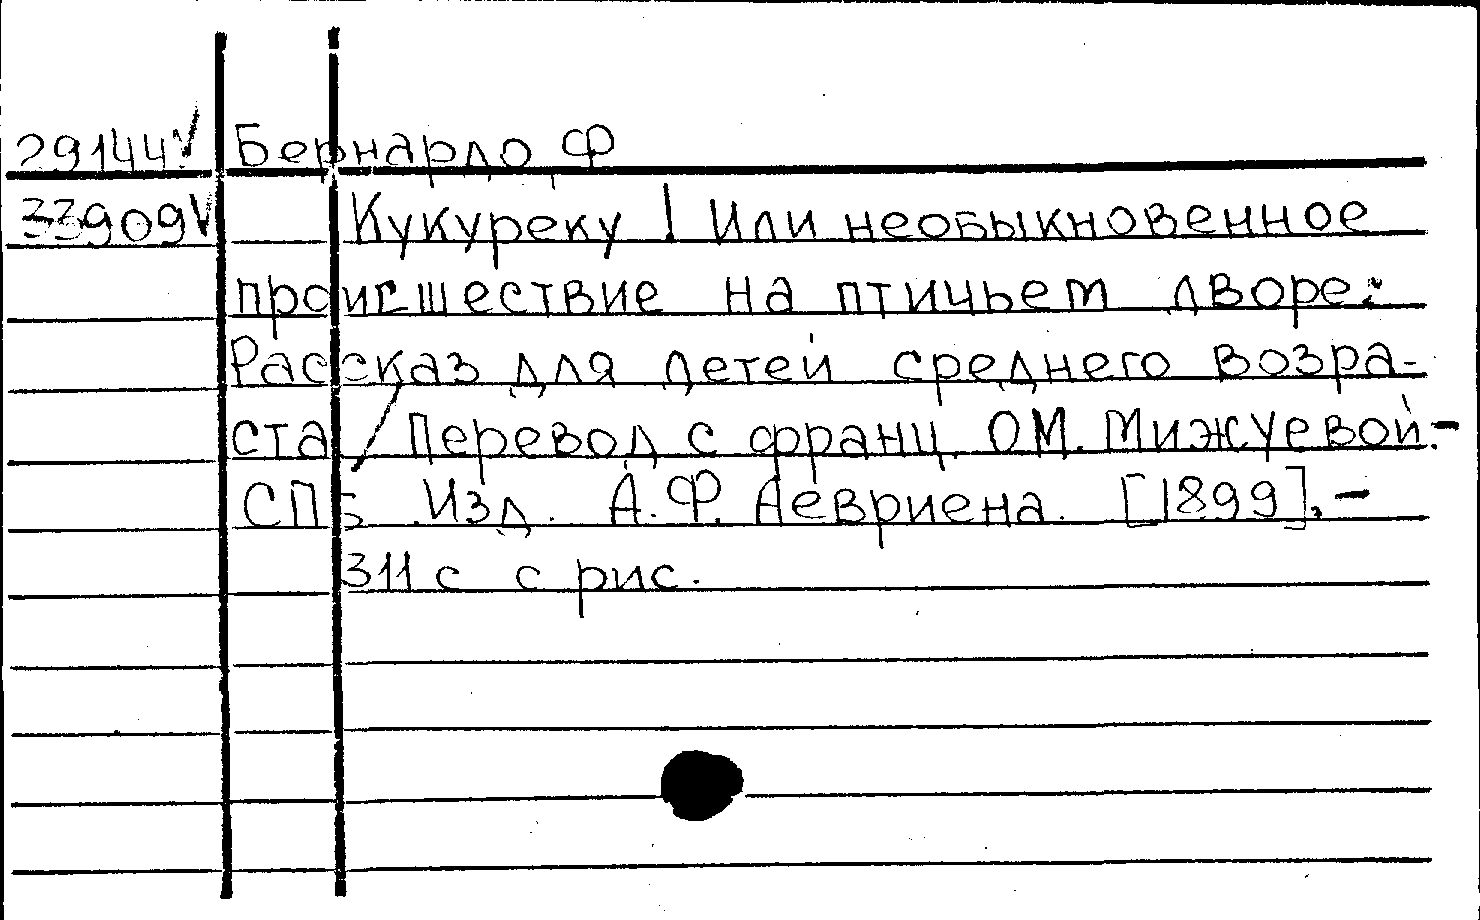 29144 ✓ Бернардо Ф
33909 V Кукуреку! Или необыкновенное
происшествие на птичьем дворе:
Рассказ для детей среднего возра-
ста / Перевод с франц. О.М. Мижуевой.-
СПБ. Изд. А.Ф. Девриена. [1899].-
311 с с рис.